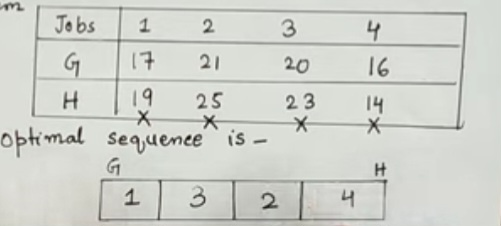 m
Jobs 1 2 3 4
G 17 21 20 16
H 19 25 23 14
x x x x
optimal sequence is -
G H
1 3 2 4